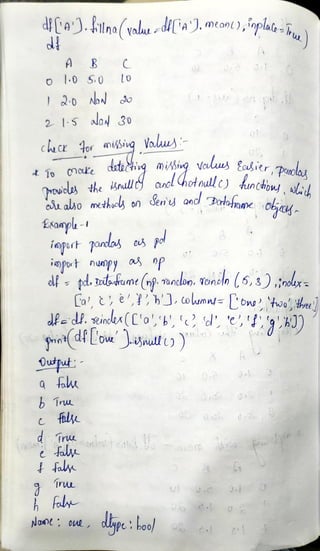 df['A'].fillna(value=df['A'].mean(), inplace=True)
df
A B C
0 1.0 5.0 10
1 2.0 NaN 20
2 1.5 NaN 30
check for missing values:-
* To make detecting missing values Easier, pandas
provides the isnull() and notnull() functions, which
are also methods on Series and Dataframe objects-
Example-1
import pandas as pd
import numpy as np
df = pd.Dataframe(np.random.randn(5,3), index=
['a', 'c', 'e', 'f', 'h'], columns=['one', 'two', 'three']
df = df.reindex(['a', 'b', 'c', 'd', 'e', 'f', 'g', 'h'])
print(df['one'].isnull())
Output:-
a False
b True
c False
d True
e False
f False
g True
h False
Name: one, dtype: bool